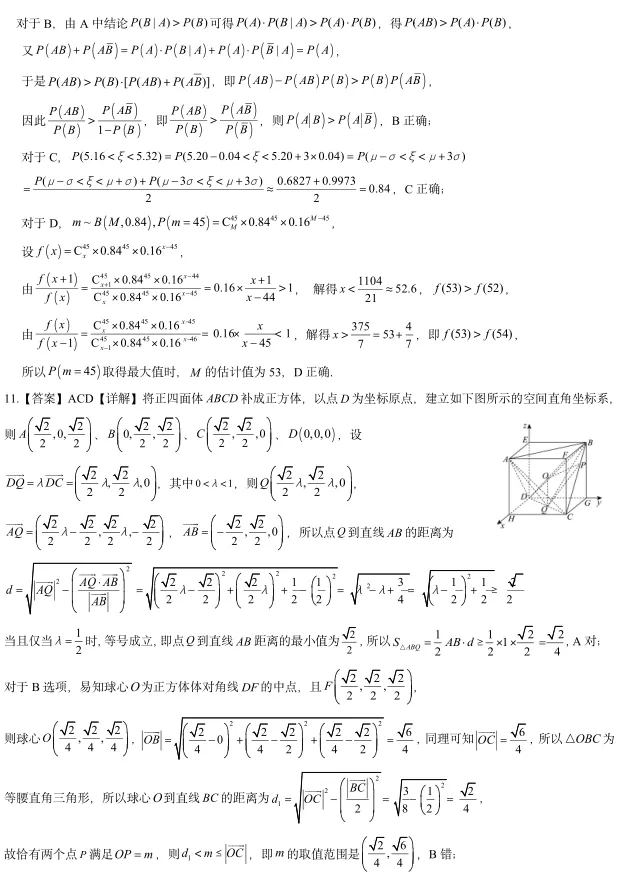 对于 B，由 A 中结论 P(B | A) > P(B) 可得 P(A)·P(B | A) > P(A)·P(B)，得 P(AB) > P(A)·P(B)，
又 P(AB)+P(AB̅) = P(A)·P(B | A)+P(A)·P(B̅ | A) = P(A)，
于是 P(AB) > P(B)·[P(AB)+P(AB̅)]，即 P(AB)−P(AB)P(B) > P(B)P(AB̅)，
因此 P(AB)/P(B) > P(AB̅)/(1−P(B))，即 P(AB)/P(B) > P(AB̅)/P(B̅)，则 P(A|B) > P(A|B̅)，B 正确；
对于 C，P(5.16 < ξ < 5.32) = P(5.20−0.04 < ξ < 5.20+3×0.04) = P(μ−σ < ξ < μ+3σ)
= (P(μ−σ < ξ < μ+σ)+P(μ−3σ < ξ < μ+3σ))/2 ≈ (0.6827+0.9973)/2 = 0.84，C 正确；
对于 D，m ~ B(M,0.84), P(m = 45) = C_M^45 × 0.84^45 × 0.16^(M−45)，
设 f(x) = C_x^45 × 0.84^45 × 0.16^(x−45)，
由 f(x+1)/f(x) = (C_(x+1)^45 × 0.84^45 × 0.16^(x−44))/(C_x^45 × 0.84^45 × 0.16^(x−45)) = 0.16× (x+1)/(x−44) > 1， 解得 x < 1104/21 ≈ 52.6，f(53) > f(52)，
由 f(x)/f(x−1) = (C_x^45 × 0.84^45 × 0.16^(x−45))/(C_(x−1)^45 × 0.84^45 × 0.16^(x−46)) = 0.16× x/(x−45) < 1，解得 x > 375/7 = 53+4/7，即 f(53) > f(54)，
所以 P(m = 45) 取得最大值时，M 的估计值为 53，D 正确.
11.【答案】ACD【详解】将正四面体 ABCD 补成正方体，以点 D 为坐标原点，建立如下图所示的空间直角坐标系，
则 A(√2/2,0,√2/2)、B(0,√2/2,√2/2)、C(√2/2,√2/2,0)、D(0,0,0)，设
DQ⃗ = λDC⃗ = (√2/2 λ,√2/2 λ,0)，其中 0 < λ < 1，则 Q(√2/2 λ,√2/2 λ,0)，
AQ⃗ = (√2/2 λ−√2/2,√2/2 λ,−√2/2)，AB⃗ = (−√2/2,√2/2,0)，所以点 Q 到直线 AB 的距离为
d = √(|AQ⃗|²−(AQ⃗·AB⃗/|AB⃗|)²) = √((√2/2 λ−√2/2)²+(√2/2 λ)²+1/2−(1/2)²) = √(λ²−λ+3/4) = √((λ−1/2)²+1/2) ≥ √2/2
当且仅当 λ = 1/2 时, 等号成立, 即点 Q 到直线 AB 距离的最小值为 √2/2，所以 S△ABQ = 1/2 AB·d ≥ 1/2×1×√2/2 = √2/4，A 对；
对于 B 选项，易知球心 O 为正方体体对角线 DF 的中点，且 F(√2/2,√2/2,√2/2)，
则球心 O(√2/4,√2/4,√2/4)，|OB⃗| = √((√2/4−0)²+(√2/4−√2/2)²+(√2/4−√2/2)²) = √6/4，同理可知 |OC⃗| = √6/4，所以 △OBC 为
等腰直角三角形，所以球心 O 到直线 BC 的距离为 d₁ = √(|OC⃗|²−(|BC⃗|/2)²) = √(3/8−(1/2)²) = √2/4，
故恰有两个点 P 满足 OP = m，则 d₁ < m ≤ |OC⃗|，即 m 的取值范围是 (√2/4,√6/4]，B 错；
z
E
B
A
F
P
O
D
G
y
Q
H
C
x